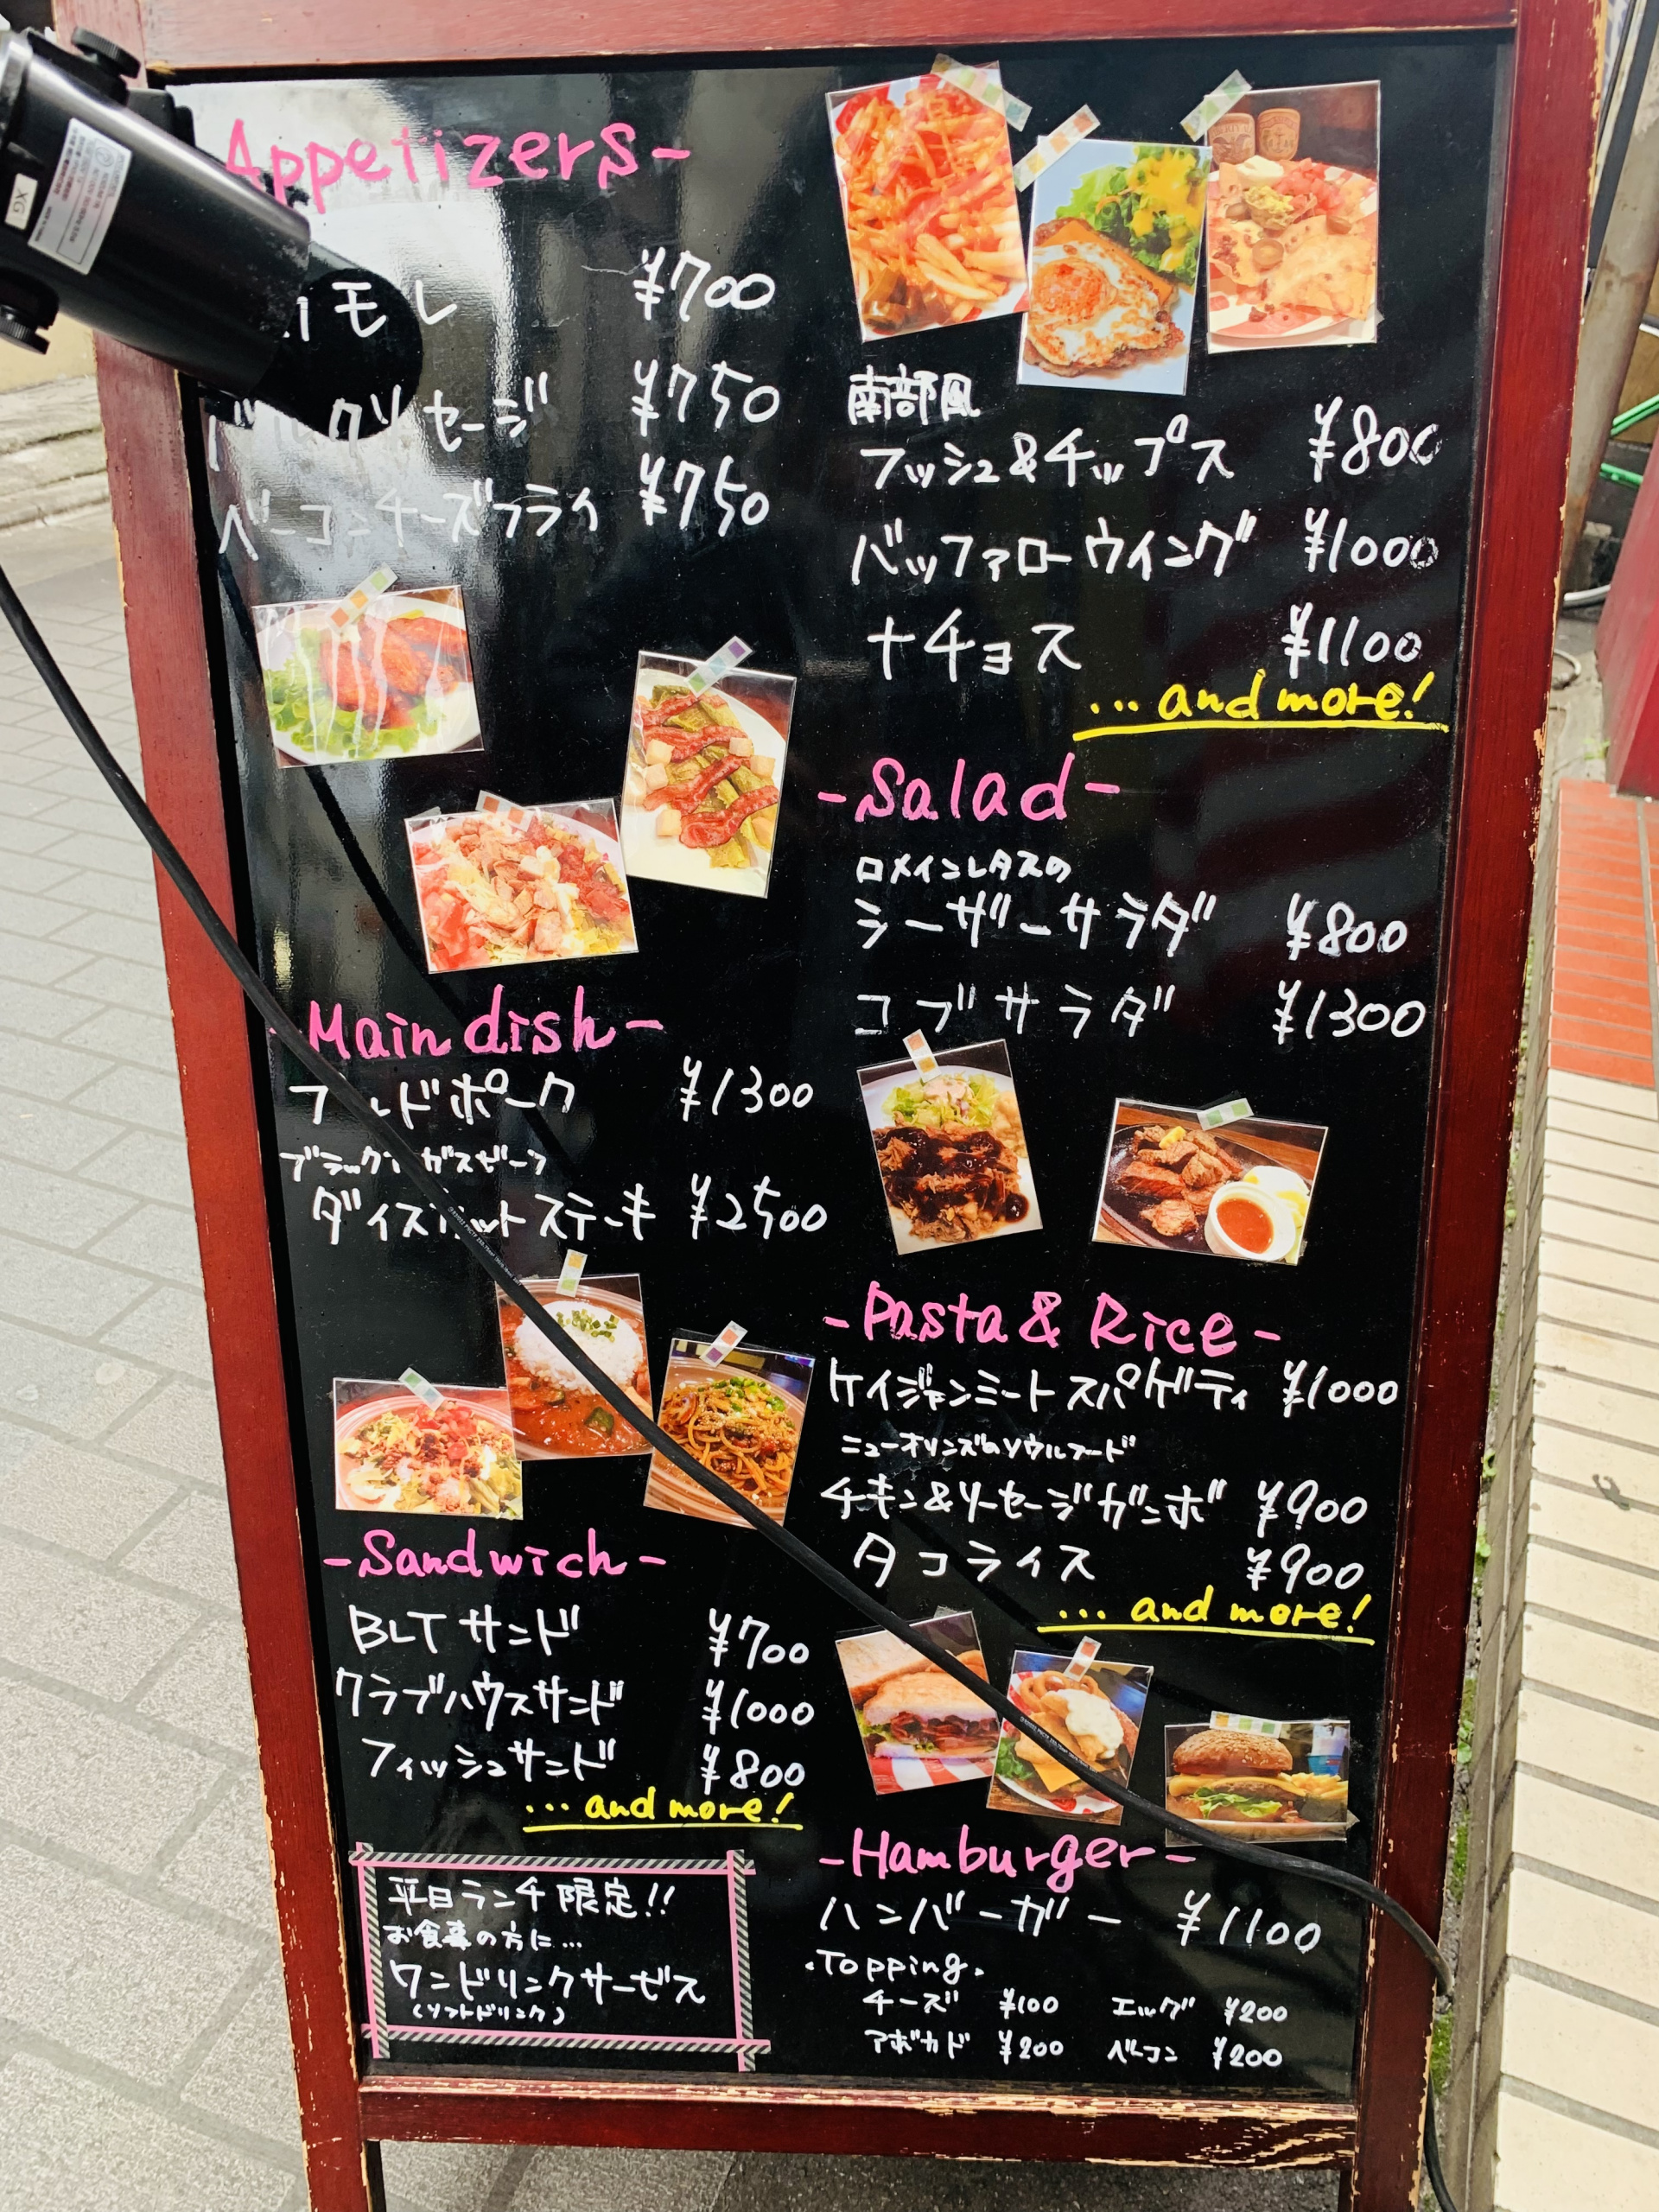 Appetizers-
モレ ¥700
セージ ¥750
ベーコンチーズフライ ¥750
南部風
フッシュ&チップス ¥800
バッファローウイング ¥1000
ナチョス ¥1100
... and more!
-Salad-
ロメインレタスの
シーザーサラダ ¥800
コブサラダ ¥1300
-Main dish-
ルドポーク ¥1300
ブラック ガスビーフ
ダイスカットステーキ ¥2500
-Pasta & Rice-
ケイジャンミートスパゲティ ¥1000
ニューオリンズのソウルフード
チキン&ソーセージガンボ ¥900
タコライス ¥900
... and more!
-Sandwich-
BLTサンド ¥700
クラブハウスサンド ¥1000
フィッシュサンド ¥800
... and more!
平日ランチ限定!!
お食事の方に...
ワンドリンクサービス
(ソフトドリンク)
-Hamburger-
ハンバーガー ¥1100
.Topping.
チーズ ¥100 エッグ ¥200
アボカド ¥200 ベーコン ¥200
XG